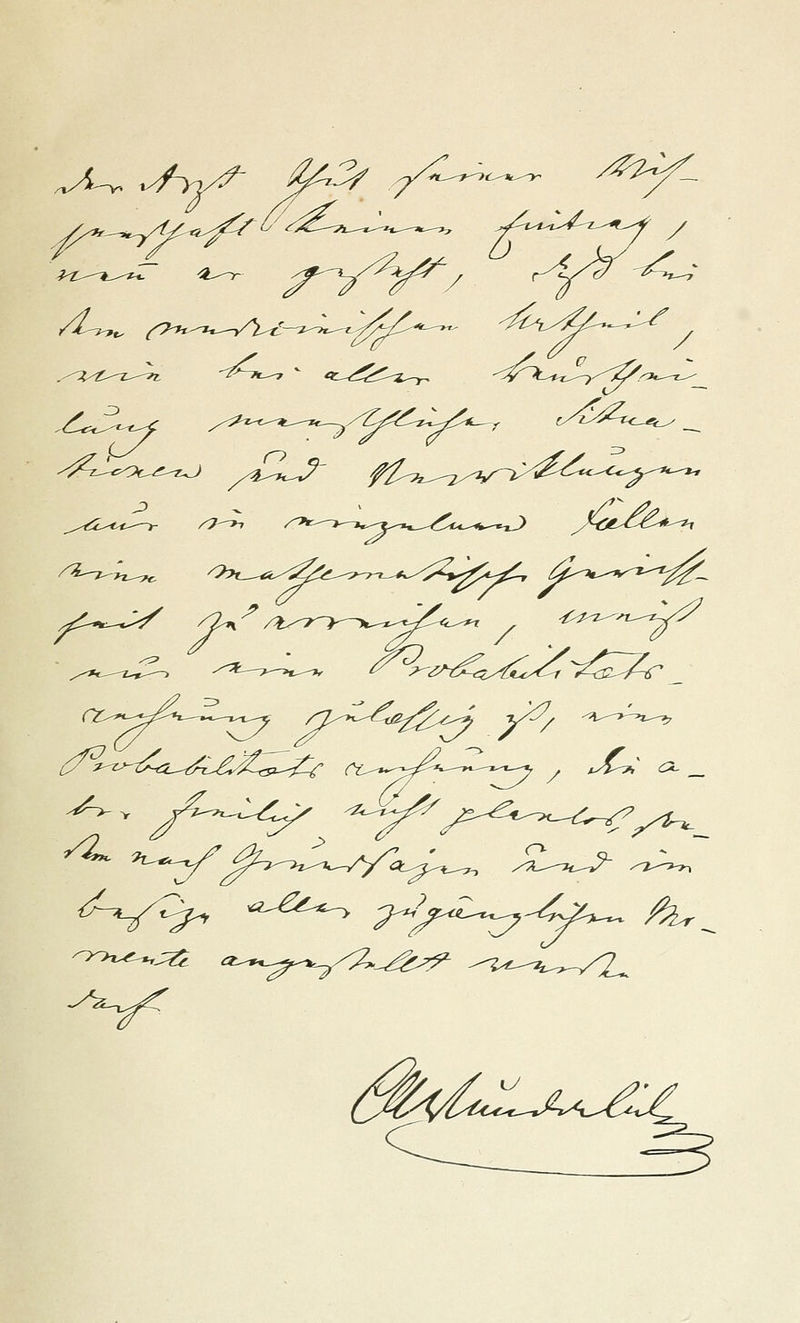 der Arzt thut seiner Wis-
senschaft keinen Eintrag,
wen̄ er gesteht, daß bei
dem medicinischen Urtheil,
wie bei aller Beurthei-
lung menschlicher Situa-
tionen und Verwiklungen
nur in einzelnen Fällen
eine mathematische Gewiss-
heit zu erreichen, meist
nur eine Probabilitæts-
rechnung zulæssig ist, eine
Probabilitæts rechnung, die a-
ber freilich nicht planlos, son-
dern nach Grundsäzen und im
besize aller zugänglichen Mo-
mente angestellt werden
darf
CAWunderlich